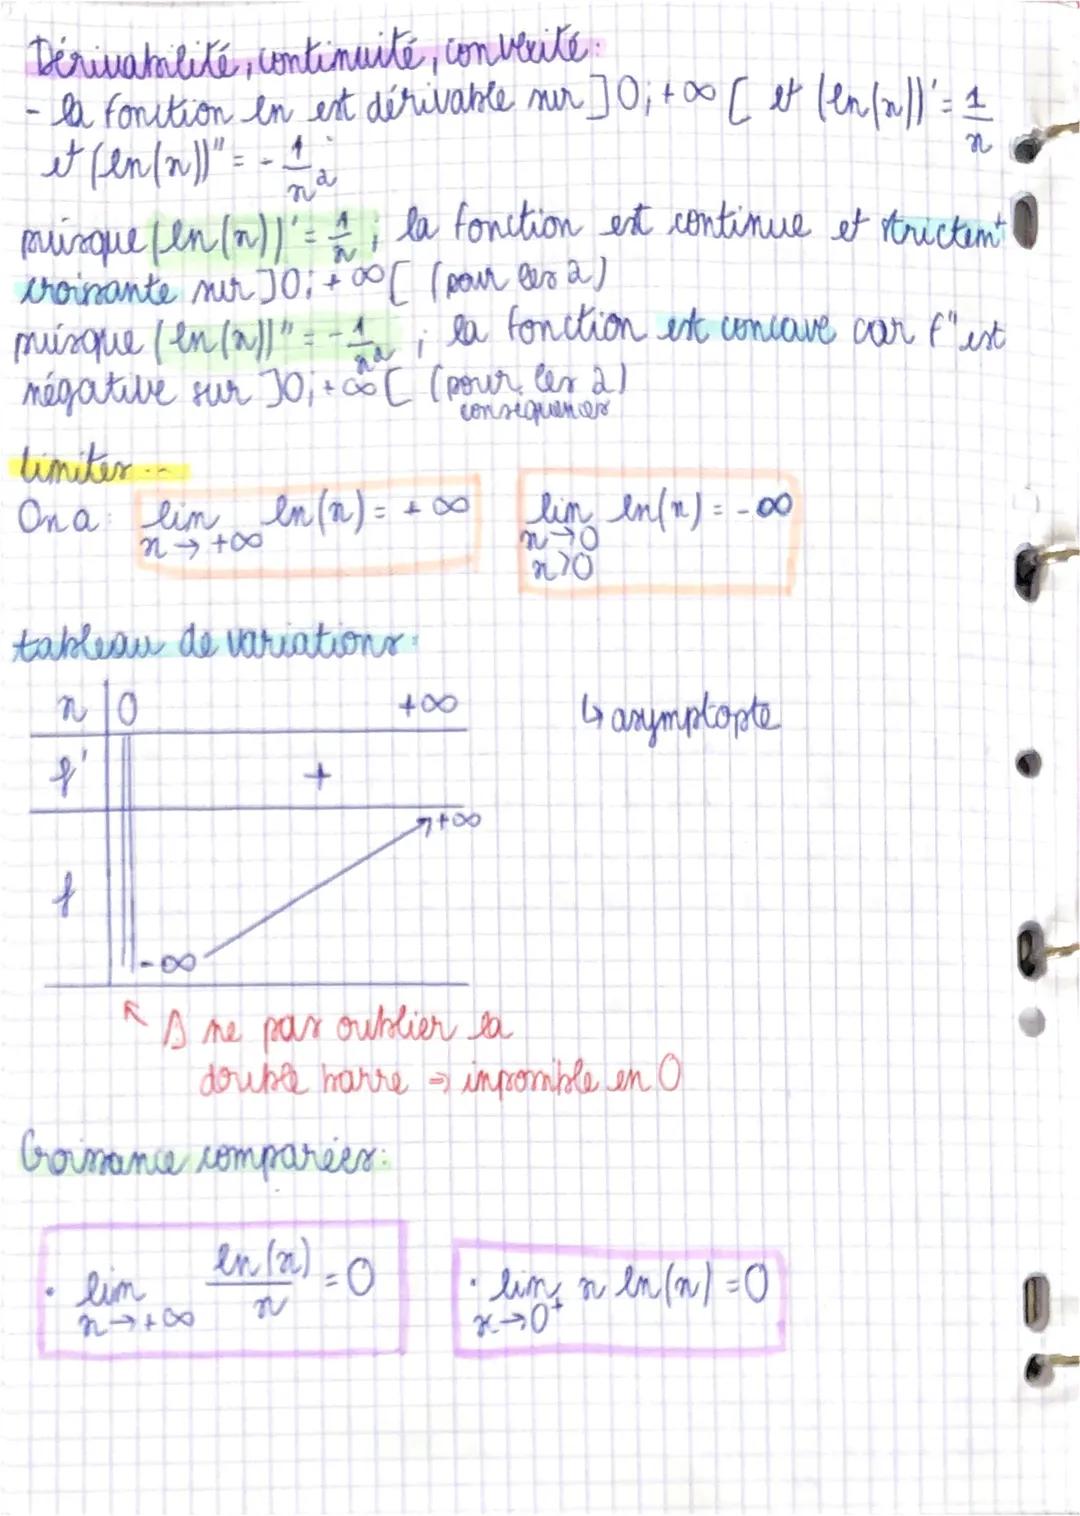 Dérivabilité, continuité, convexité:
- la fonction ln est dérivable sur ]0;+∞[ et (ln(x))' = 1/x
et (ln(x))" = - 1/x²
puisque (ln(x))' = 1/x ; la fonction est continue et strictemt
croissante sur ]0;+∞[ (pour les 2)
puisque (ln(x))" = - 1/x² ; la fonction est concave car f" est
négative sur ]0;+∞[ (pour les 2)
conséquences
limites...
On a: lim x→+∞ ln(x) = +∞ lim x→0 x>0 ln(x) = -∞
tableau de variations:
x 0 +∞ ↳ asymptopte
f' +
+∞
f
-∞
↖ ⚠ ne pas oublier la
double barre → impossible en 0
Croissance comparées:
• lim x→+∞ ln(x)/x = 0 • lim x→0⁺ x ln(x) = 0